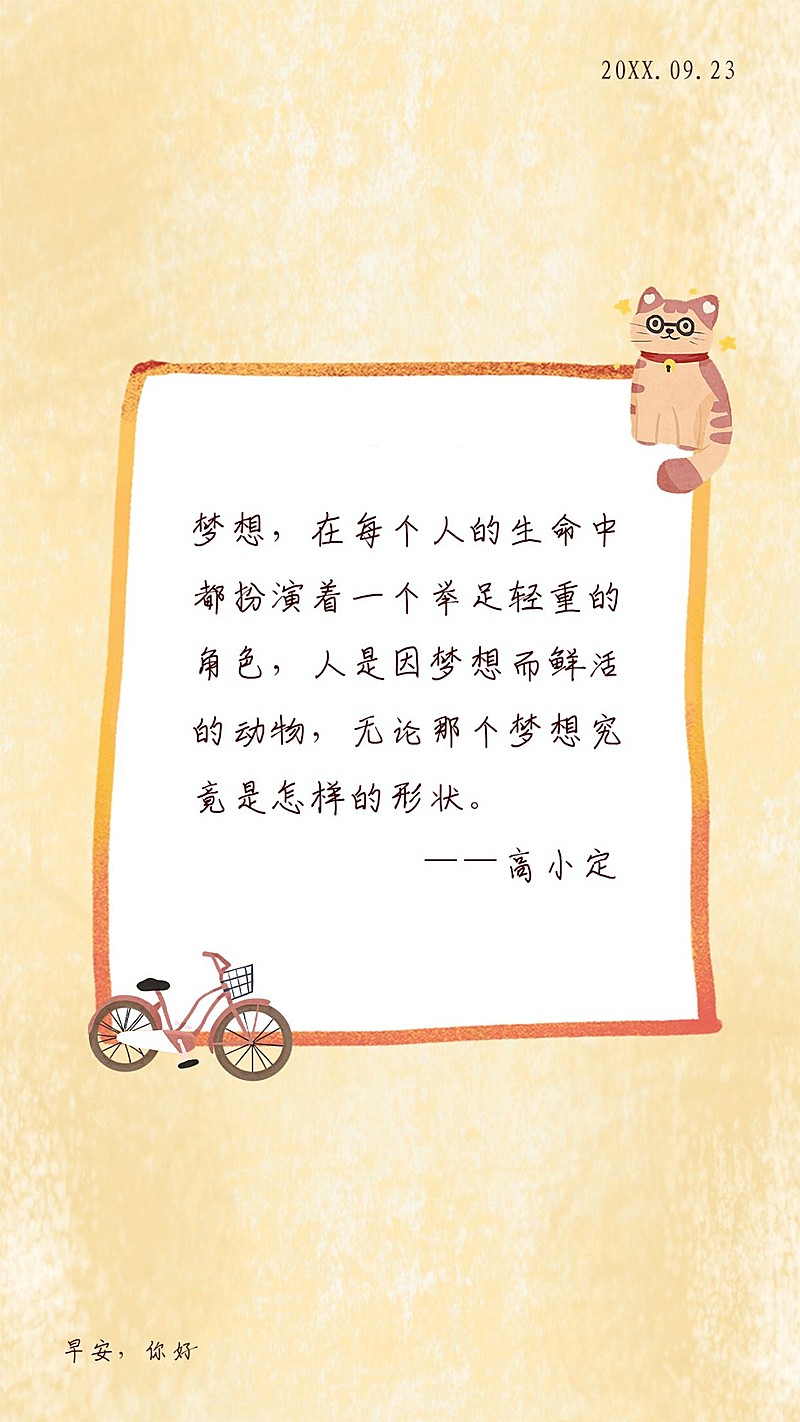 20XX.09.23
梦想，在每个人的生命中
都扮演着一个举足轻重的
角色，人是因梦想而鲜活
的动物，无论那个梦想究
竟是怎样的形状。
——高小定
早安，你好